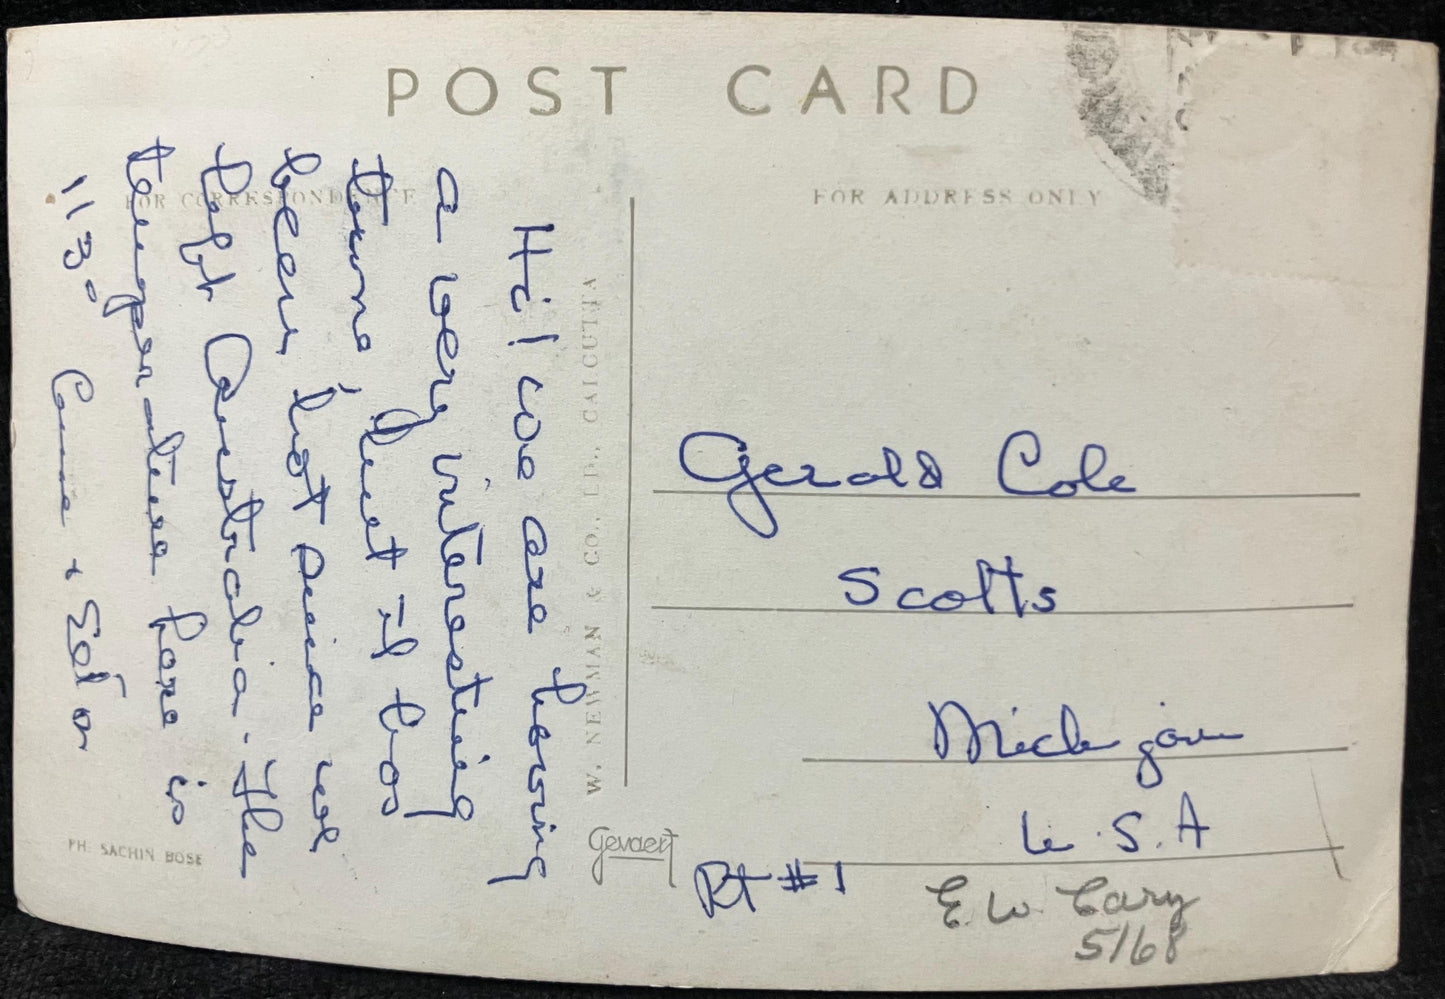 POST CARD
FOR CORRESPONDENCE
FOR ADDRESS ONLY
Hi! we are having
a very interesting
time, but it has
been hot since we
left Australia. The
temperature here is
113°
W. NEWMAN & CO., LTD., CALCUTTA
Gerald Cole
Scotts
Michigan
U.S.A
Rt #1
E.W. Cary
5/68
Gevaert
PH: SACHIN BOSE